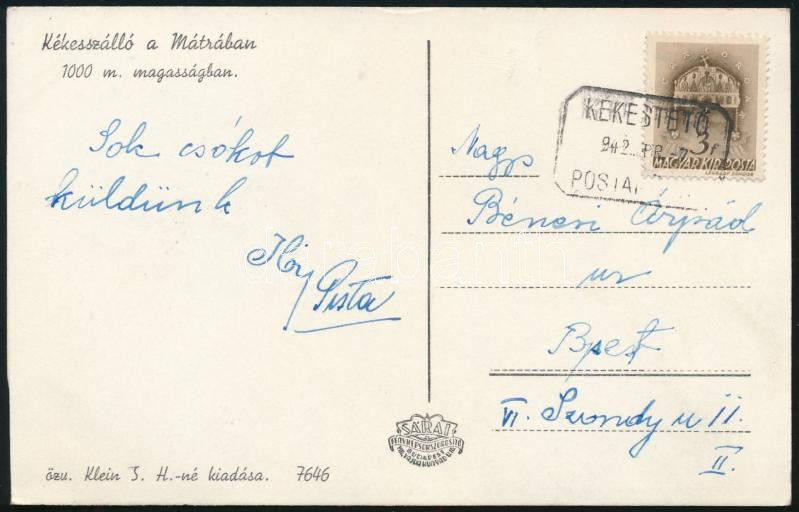 Kékesszálló a Mátrában
1000 m. magasságban.
Sok csókot
küldünk
Pista
özv. Klein S. H.-né kiadása. 7646
SÁRAI
FÉNYKÉPSOKSZOROSÍTÓ
BUDAPEST
KÉKESTETŐ
942
POSTA
3f
MAGYAR KIR. POSTA
Nagys
Béncsi Árpád
ur
Bpest
VI. Szondy u 11.
II.